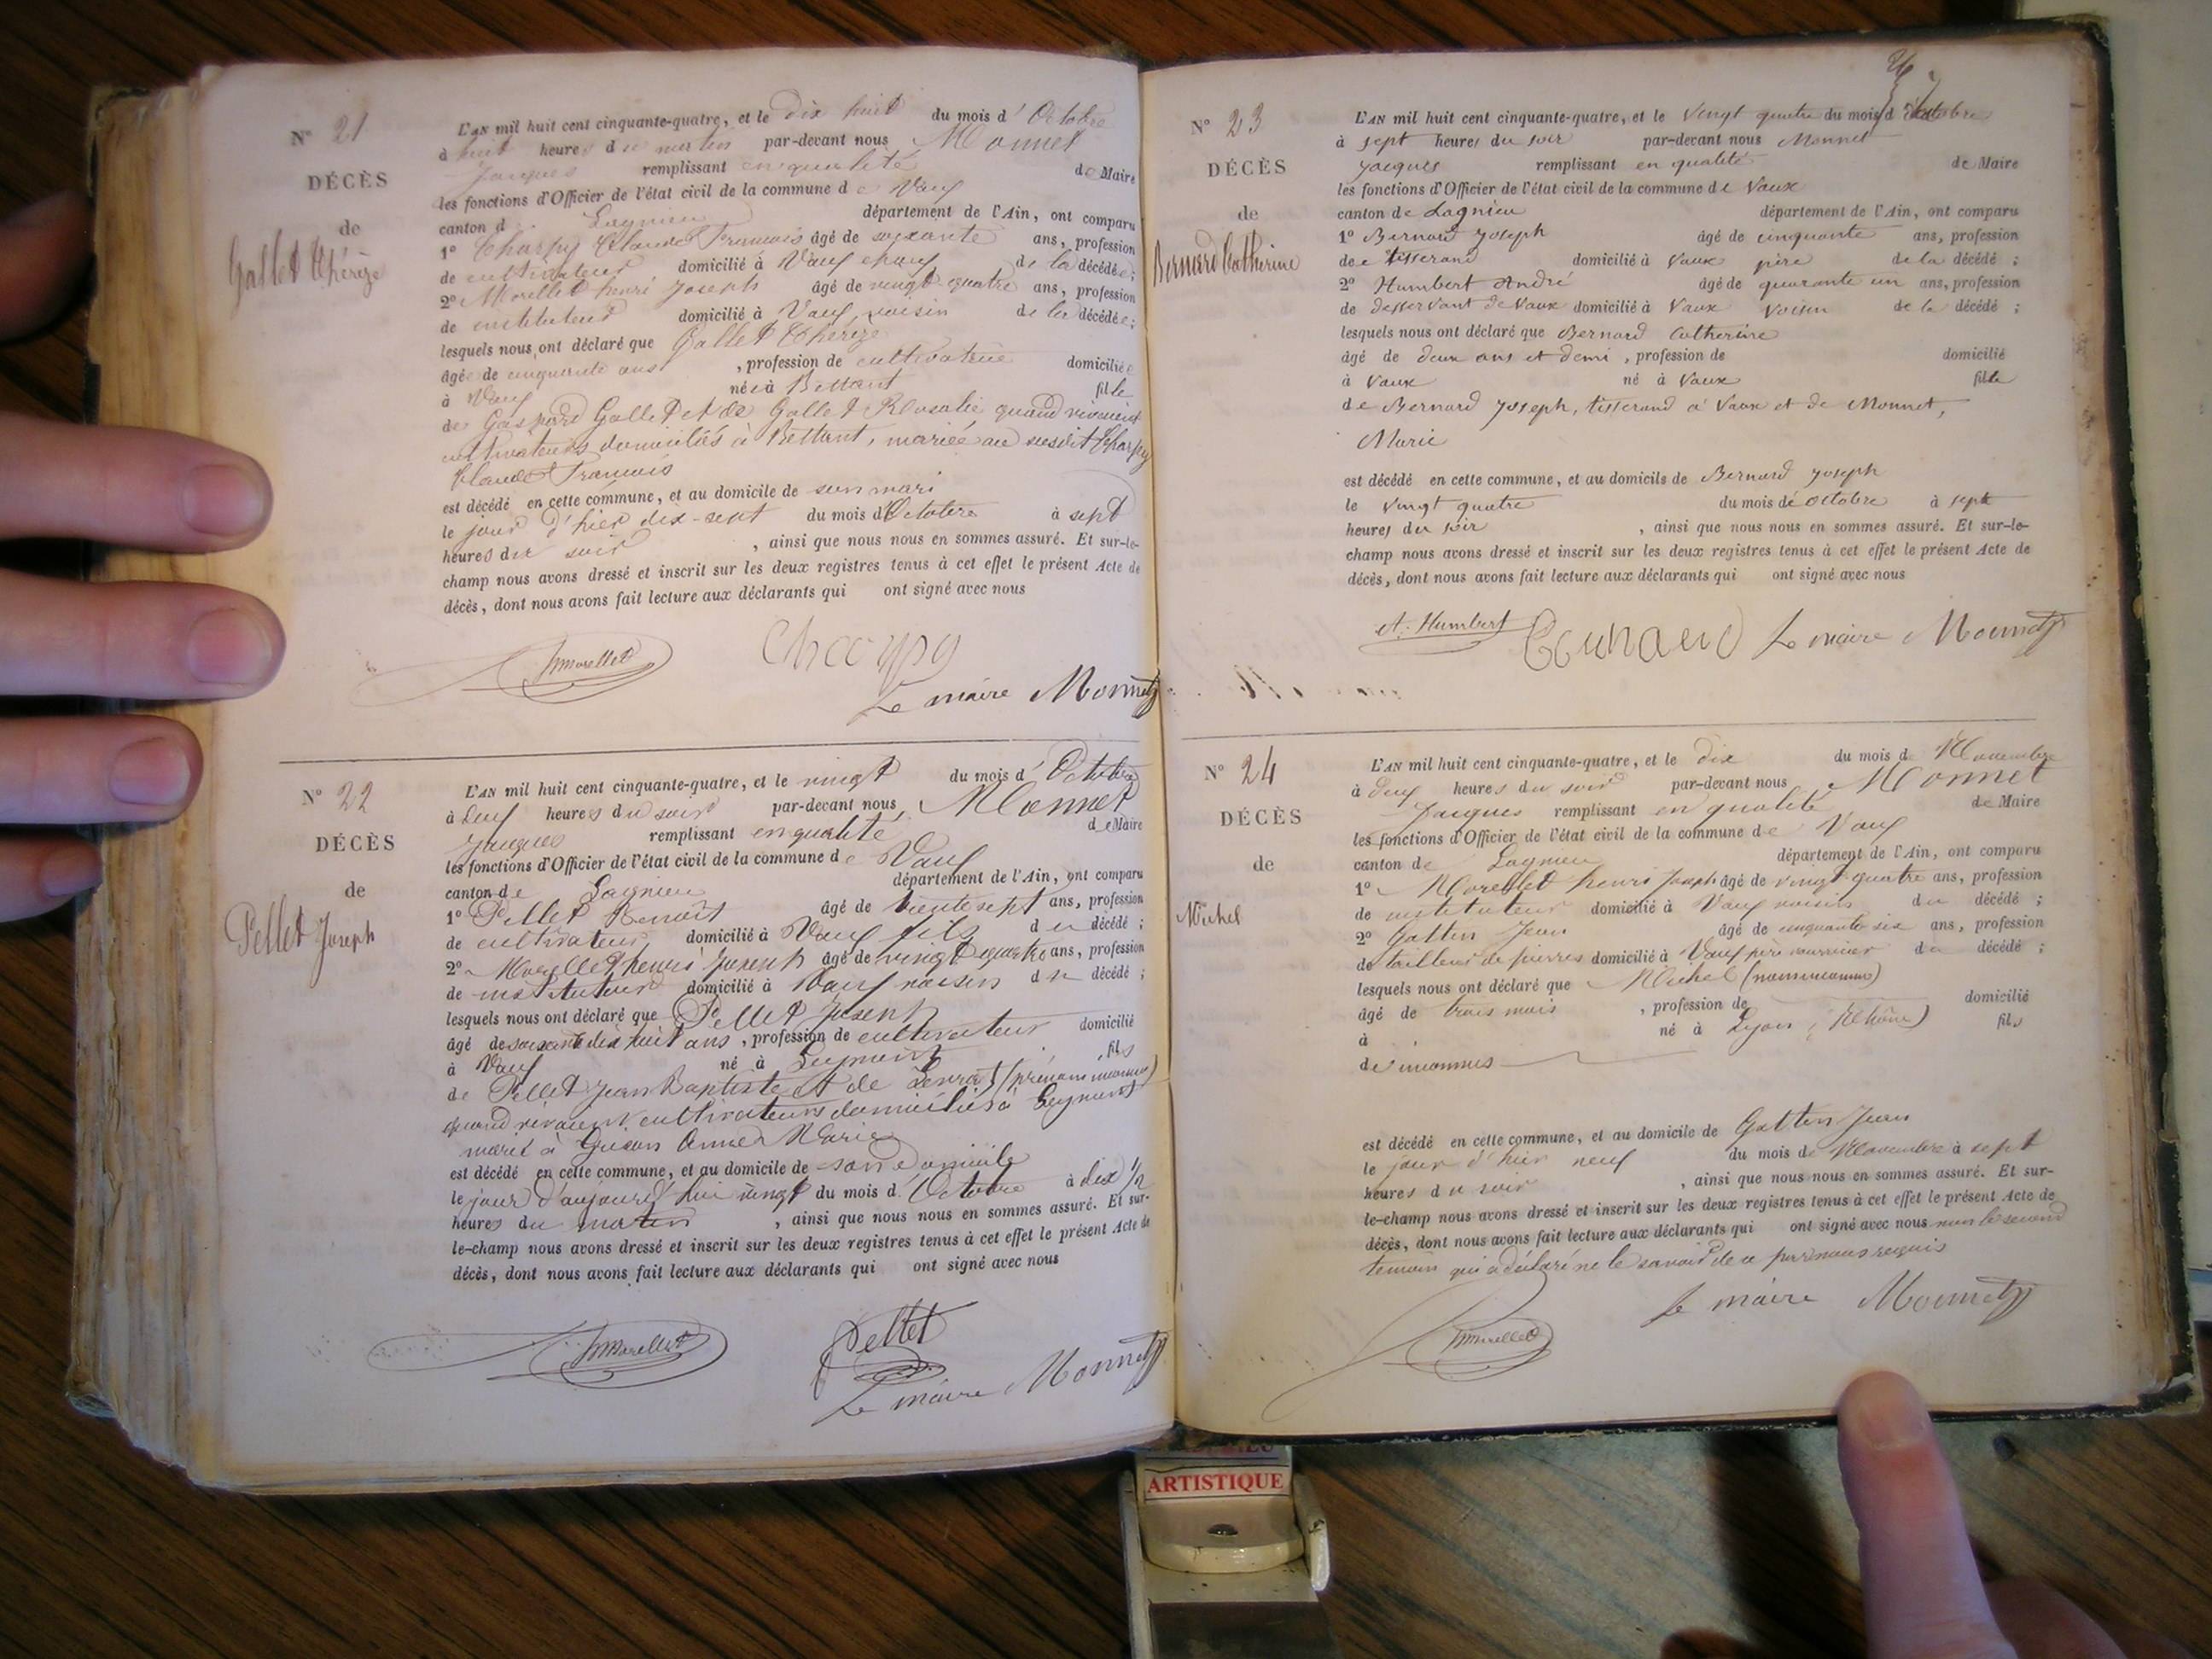 N° 21
DÉCÈS
de
Gallet Thérèze
L'AN mil huit cent cinquante-quatre, et le dix huit du mois d'Octobre
à huit heures du matin par-devant nous Monnet
Jacques remplissant en qualité de Maire
les fonctions d'Officier de l'état civil de la commune de Vaux
canton d Lagnieu département de l'Ain, ont comparu
1° Charpy Claude Francois âgé de soixante ans, profession
de cultivateur domicilié à Vaux epoux de la décédée;
2° Morellet henri Joseph âgé de vingt quatre ans, profession
de instituteur domicilié à Vaux, voisin de la décédée;
lesquels nous ont déclaré que Gallet Thérèze
âgée de cinquante ans, profession de cultivatrice domiciliée
à Vaux née à Bettant fille
de Gaspard Gallet et de Gallet Rosalie quand vivaient
cultivateurs domiciliés à Bettant, mariée au susdit Charpy
Claude Francois
est décédé en cette commune, et au domicile de son mari
le jour d'hier dix-sept du mois d'Octobre à sept
heures du soir, ainsi que nous nous en sommes assuré. Et sur-le-
champ nous avons dressé et inscrit sur les deux registres tenus à cet effet le présent Acte de
décès, dont nous avons fait lecture aux déclarants qui ont signé avec nous
hmorellet Charpy
Le maire Monnet
N° 22
DÉCÈS
de
Pellet Joseph
L'AN mil huit cent cinquante-quatre, et le vingt du mois d'Octobre
à deux heures du soir par-devant nous Monnet
Jacques remplissant en qualité de Maire
les fonctions d'Officier de l'état civil de la commune de Vaux
canton de Lagnieu département de l'Ain, ont comparu
1° Pellet Benoit âgé de trente sept ans, profession
de cultivateur domicilié à Vaux fils du décédé;
2° Morellet henri Joseph âgé de vingt quatre ans, profession
de instituteur domicilié à Vaux voisin du décédé;
lesquels nous ont déclaré que Pellet Joseph
âgé de soixante dix huit ans, profession de cultivateur domicilié
à Vaux né à Leyment fils
de Pellet Jean Baptiste et de (prénom inconnu)
quand vivaient cultivateurs domiciliés à Leyment
marié à Anne Marie
est décédé en cette commune, et au domicile de son domicile
le jour d'aujourd'hui vingt du mois d'Octobre à dix 1/2
heures du matin, ainsi que nous nous en sommes assuré. Et sur-
le-champ nous avons dressé et inscrit sur les deux registres tenus à cet effet le présent Acte de
décès, dont nous avons fait lecture aux déclarants qui ont signé avec nous
hmorellet Pellet
Le maire Monnet
N° 23
DÉCÈS
de
Bernard Catherine
L'AN mil huit cent cinquante-quatre, et le vingt quatre du mois d'octobre
à sept heures du soir par-devant nous Monnet
Jacques remplissant en qualité de Maire
les fonctions d'Officier de l'état civil de la commune de Vaux
canton de Lagnieu département de l'Ain, ont comparu
1° Bernard Joseph âgé de cinquante ans, profession
de tisserand domicilié à Vaux père de la décédé;
2° Humbert André âgé de quarante un ans, profession
de desservant de Vaux domicilié à Vaux voisin de la décédé;
lesquels nous ont déclaré que Bernard Catherine
âgé de deux ans et demi, profession de domicilié
à Vaux né à Vaux fille
de Bernard Joseph, tisserand à Vaux et de Monnet,
Marie
est décédé en cette commune, et au domicile de Bernard Joseph
le vingt quatre du mois de octobre à sept
heures du soir, ainsi que nous nous en sommes assuré. Et sur-le-
champ nous avons dressé et inscrit sur les deux registres tenus à cet effet le présent Acte de
décès, dont nous avons fait lecture aux déclarants qui ont signé avec nous
A. Humbert Le maire Monnet
N° 24
DÉCÈS
de
Michel
L'AN mil huit cent cinquante-quatre, et le dix du mois de Novembre
à deux heures du soir par-devant nous Monnet
Jacques remplissant en qualité de Maire
les fonctions d'Officier de l'état civil de la commune de Vaux
canton de Lagnieu département de l'Ain, ont comparu
1° Morellet henri Joseph âgé de vingt quatre ans, profession
de instituteur domicilié à Vaux voisin du décédé;
2° Gattin Jean âgé de cinquante six ans, profession
de tailleur de pierres domicilié à Vaux père nourricier du décédé;
lesquels nous ont déclaré que Michel (nom inconnu)
âgé de trois mois, profession de domicilié
à né à Lyon (Rhône) fils
de inconnus
est décédé en cette commune, et au domicile de Gattin Jean
le jour d'hier neuf du mois de Novembre à sept
heures du soir, ainsi que nous nous en sommes assuré. Et sur-
le-champ nous avons dressé et inscrit sur les deux registres tenus à cet effet le présent Acte de
décès, dont nous avons fait lecture aux déclarants qui ont signé avec nous non le second
témoin qui a déclaré ne le savoir de ce par nous requis
hmorellet Le maire Monnet
ARTISTIQUE